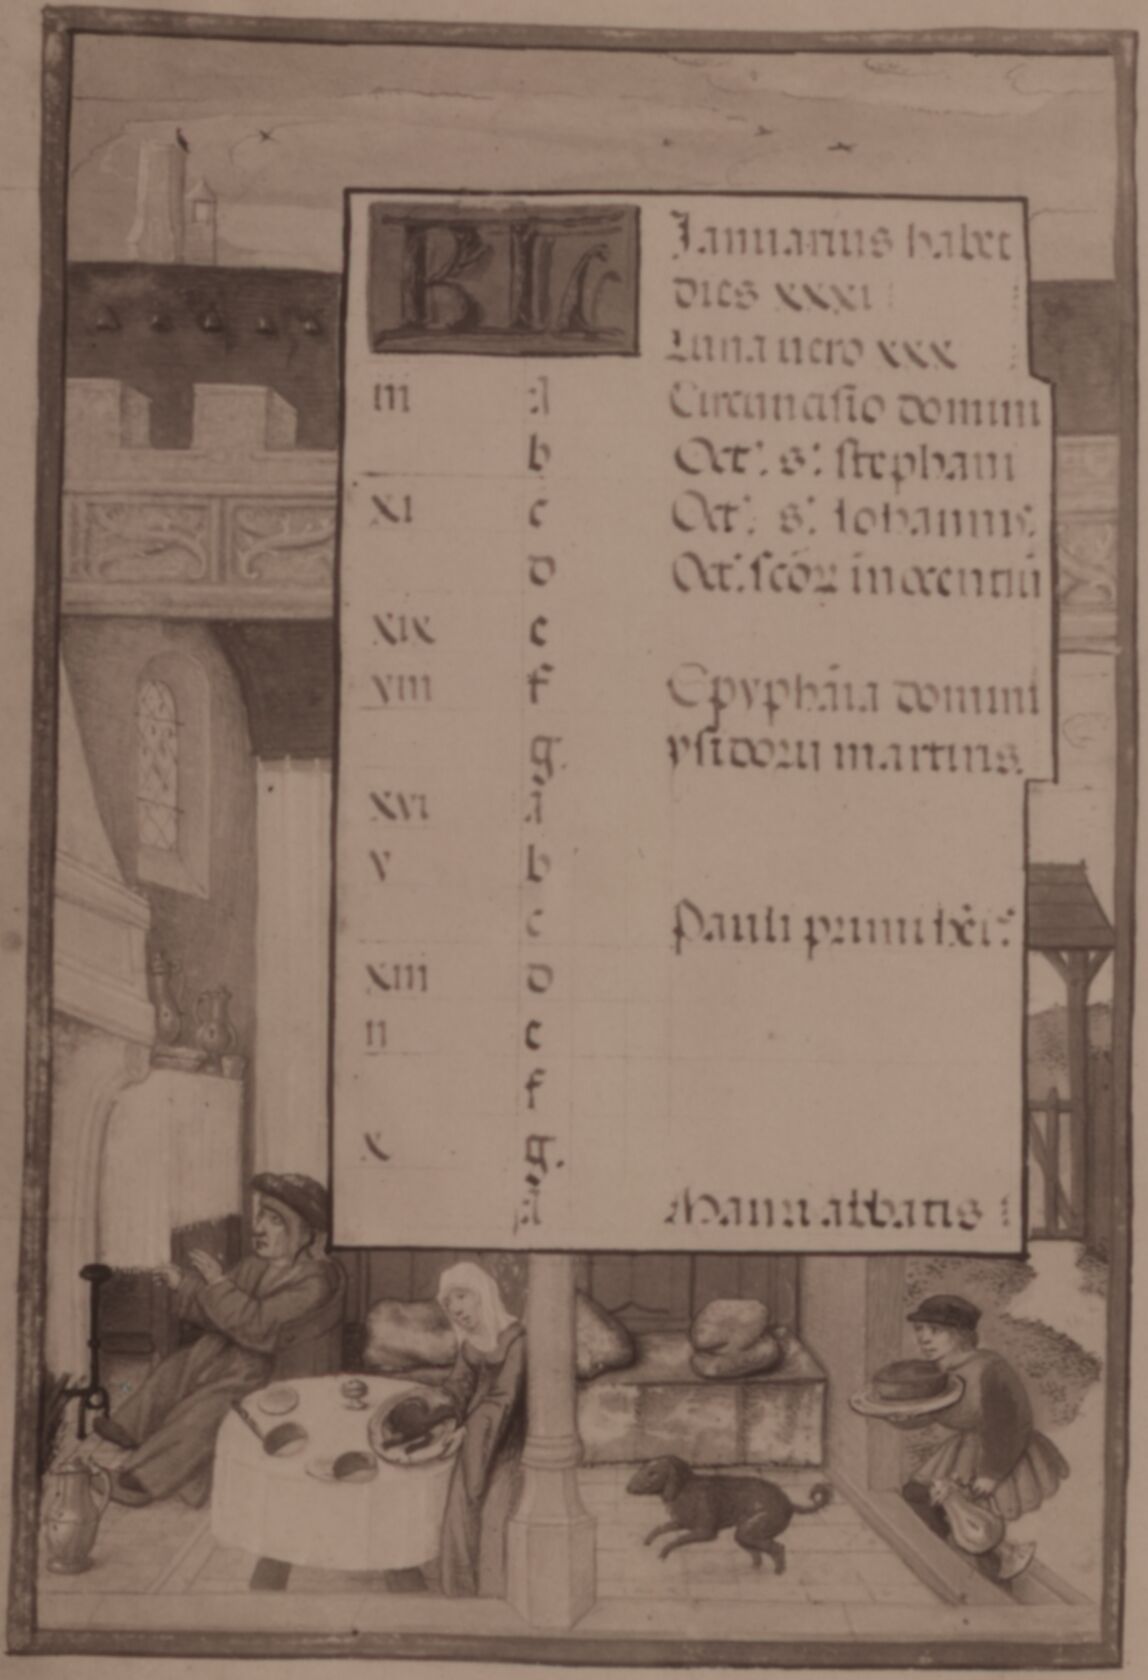 KL Januarius habet
dies xxxi
Luna uero xxx
iii A Circuncisio domini
b Oct. s. stephani
xi c Oct. s. Iohannis
d Oct. scoꝝ inocentiū
xix e
viii f Epyphāia domini
g. ysidorij martiris
xvi A
v b
c Pauli primi
xiii d
ii e
f
x g.
A Mauri abbatis